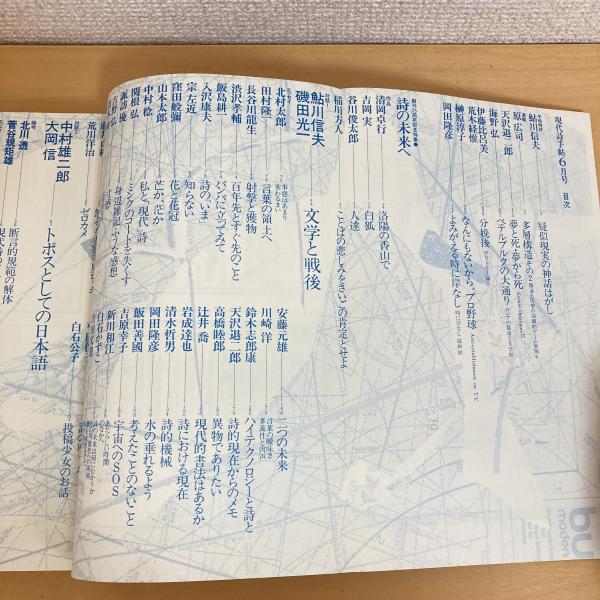 現代詩手帖 6月号 目次
鮎川信夫 疑似現実の神話はがし
原広司 多層構造その2
天沢退二郎 夢と死・夢から死
海野弘 ペテルブルクの大通り
伊藤比呂美 分娩後
荒木経惟 なんにもないから、プロ野球
榊原淳子 よみがえる時に岸なし
岡田隆彦
創刊25周年記念特集
詩の未来へ
作品
清岡卓行 洛陽の香山で
吉岡実 白狐
谷川俊太郎 人達
稲川方人 「ことばの悲しみるさい」の肯定とせよ
対話
鮎川信夫
磯田光一 文学と戦後
エッセイ
北村太郎 事態はあまり変わるまい
田村隆一 言葉の領土へ
長谷川龍生 射撃と獲物
渋沢孝輔 百年先とすぐ先のこと
飯島耕一 パパイに立ってみて
入沢康夫 詩のいま
宗左近 知らない
窪田般彌 花と花冠
山本太郎 芒か、茫か
中村稔 私と「現代」詩
関根弘 ミンクのコートを失くす
諏訪優 身辺雑記ふうな感想
安藤元雄 二つの未来
川崎洋 言葉の曖昧さ 多義性と肉声
鈴木志郎康 ハイテクノロジーと詩と
天沢退二郎 詩的現在からのメモ
高橋睦郎 異物でありたい
辻井喬 現代的書法はあるか
岩成達也 詩における現在
清水哲男 詩的機械
岡田隆彦 水の垂れるよう
飯田善國 考えたことのないこと
吉原幸子 宇宙へのSOS
新川和江 あたらしい時間のなかへ
白石かずこ
荒川洋治
対話
中村雄二郎
大岡信 トポスとしての日本語
北川透 断言的規範の解体
菅谷規矩雄
白石公子 投稿少女のお話